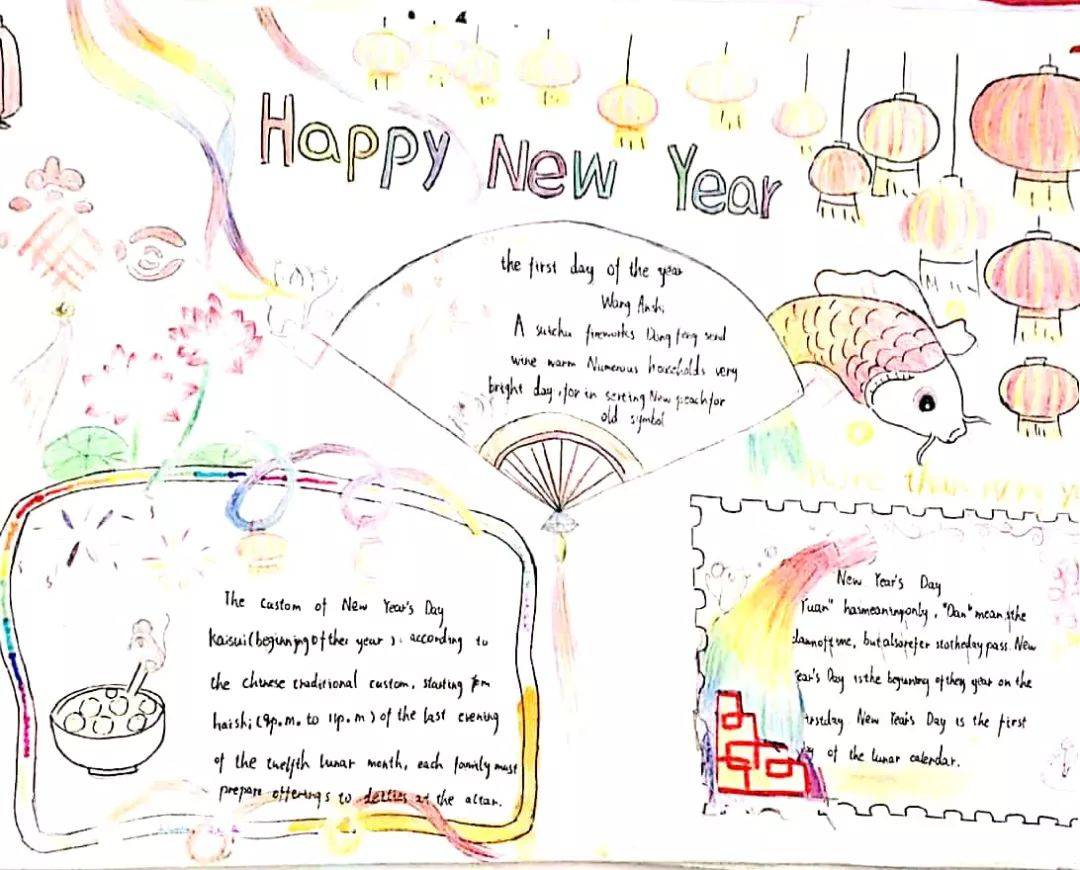 Happy New Year
the first day of the year
Wang Anshi
A suichu fireworks Dong feng send
wine warm Numerous households very
bright day, for in setting New peach for
old symbol
more than every
The custom of New Year's Day
kaisui (beginning of ther year). according to
the chinese traditional custom, starting
haishi (9p.m. to 11p.m) of the last evening
of the twelfth lunar month, each family must
prepare offerings to deities at the altar.
New Year's Day
Yuan" hasmeaningonly, "Dan" mean sthe
dawnoftime, butalsorefer stotheday pass. New
Year's Day isthe beginning of they year on the
irstday New Year's Day is the first
of the lunar calendar.